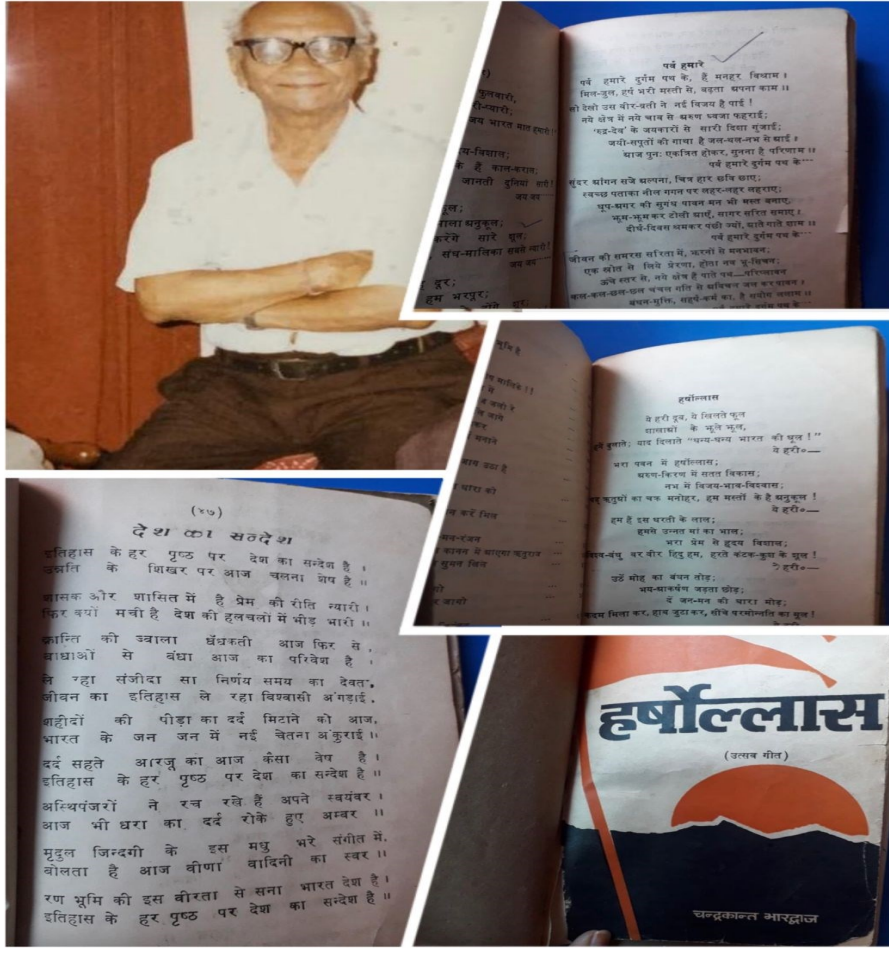 फुलवारी,
री-प्यारी;
जय भारत मात हमारी !
य-विशाल;
के हैं काल-कराल;
जानती दुनियां सारी !
जय जय
कूल;
करेंगे सारे शूल;
संघ-मालिका सबसे न्यारी !
जय जय
दूर;
हम भरपूर;
पर्व हमारे
पर्व हमारे दुर्गम पथ के, हैं मनहर विश्राम ।
मिल-जुल, हर्ष भरी मस्ती से, बढ़ता अपना काम ॥
लो देखो उस वीर-व्रती ने नई विजय है पाई !
नये क्षेत्र में नये चाव से अरुण ध्वजा फहराई;
'रुद्र-देव' के जयकारों से सारी दिशा गुंजाई;
जयी-सपूतों की गाथा है जल-थल-नभ से आई ॥
आज पुनः एकत्रित होकर, सुनना है परिणाम ॥
पर्व हमारे दुर्गम पथ के
सुंदर आंगन सजे अल्पना, चित्र हार छवि छाए;
स्वच्छ पताका नील गगन पर लहर-लहर लहराए;
धूप-अगर की सुगंध पावन मन भी मस्त बनाए,
झूम-झूम कर टोली आएँ, सागर सरित समाए ।
दीर्घ-दिवस श्रमकर पंछी ज्यों, आते गाते शाम ॥
पर्व हमारे दुर्गम पथ के
जीवन की समरस सरिता में, झरनों से मनभावन;
एक स्रोत से लिये प्रेरणा, होता नव भू-सिंचन;
ऊंचे स्तर से, नये क्षेत्र हैं पाते पन—परिप्लावन
कल-कल-छल-छल चंचल गति से अविचल जल कर पावन ।
हर्षोल्लास
ये हरी दूब, ये खिलते फूल
शाखाओं के झूले झूल,
हमें बुलाते; याद दिलाते "धन्य-धन्य भारत की धूल !"
ये हरी०—
भरा पवन में हर्षोल्लास;
अरुण-किरण में सतत विकास;
नभ में विजय-भाव-विश्वास;
ऋतुओं का चक्र मनोहर, हम मस्तों के है अनुकूल !
ये हरी०—
हम हैं इस धरती के लाल;
हमसे उन्नत मां का भाल;
भरा प्रेम से हृदय विशाल;
विश्व-बंधु वर वीर हिंदु हम, हरते कंटक-कुश के शूल !
हरी०—
उठें मोह का बंधन तोड़;
भय-आकर्षण जड़ता छोड़;
दें जन-मन की धारा मोड़;
कदम मिला कर, हाथ जुटा कर, सींचे परमोन्नति का मूल !
(४७)
देश का सन्देश
इतिहास के हर पृष्ठ पर देश का सन्देश है ।
उन्नति के शिखर पर आज चलना शेष है ॥
शासक और शासित में है प्रेम की रीति न्यारी ।
फिर क्यों मची है देश की हलचलों में भीड़ भारी ॥
क्रान्ति की ज्वाला धँधकती आज फिर से ,
बाधाओं से बंधा आज का परिवेश है ।
ले रहा संजीदा सा निर्णय समय का देवता,
जीवन का इतिहास ले रहा विश्वासी अंगड़ाई,
शहीदों की पीड़ा का दर्द मिटाने को आज,
भारत के जन जन में नई चेतना अंकुराई ॥
दर्द सहते आरजू का आज कैसा वेष है ।
इतिहास के हर पृष्ठ पर देश का सन्देश है ॥
अस्थिपंजरों ने रच रखे हैं अपने स्वयंवर ।
आज भी धरा का दर्द रोके हुए अम्बर ॥
मृदुल जिन्दगी के इस मधु भरे संगीत में,
बोलता है आज वीणा वादिनी का स्वर ॥
रण भूमि की इस वीरता से सना भारत देश है ।
इतिहास के हर पृष्ठ पर देश का सन्देश है ॥
हर्षोल्लास
(उत्सव गीत)
चन्द्रकान्त भारद्वाज